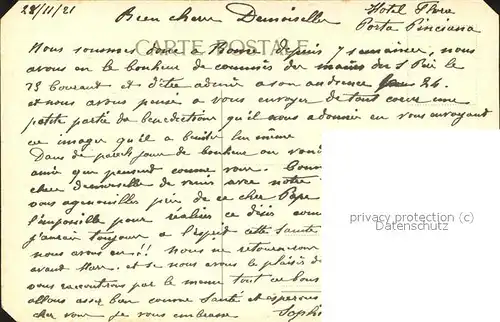 28/11/21 Bien chere Demoiselle Hotel Flore
Porta Pinciana
CARTE POSTALE
Nous sommes donc a Rome depuis 7 semaines, nous
avons eu le bonheur de des mains du S Père le
13 Courant et d'être admis a son audience 24.
et nous avons pensé a vous envoyer de tout coeur une
petite partie de benediction qu'il nous a donnée en vous envoyant
ce image qu'il a lui même
Dans de pareils jours de bonheur on
amie que pensent comme vous.
chere demoiselle de venir avec notre
vous agenouiller près de ce cher Pape
l'impossible pour réaliser ce désir
j'aurais toujours a l'esprit cette
nous avons eu!! Nous ne retournerons
avant Mars, et si nous avons le plaisir de
vous rencontrer par la même tout ce
allons assez bien comme santé et esperons
cher vous je vous embrasse Soph
privacy protection watermark